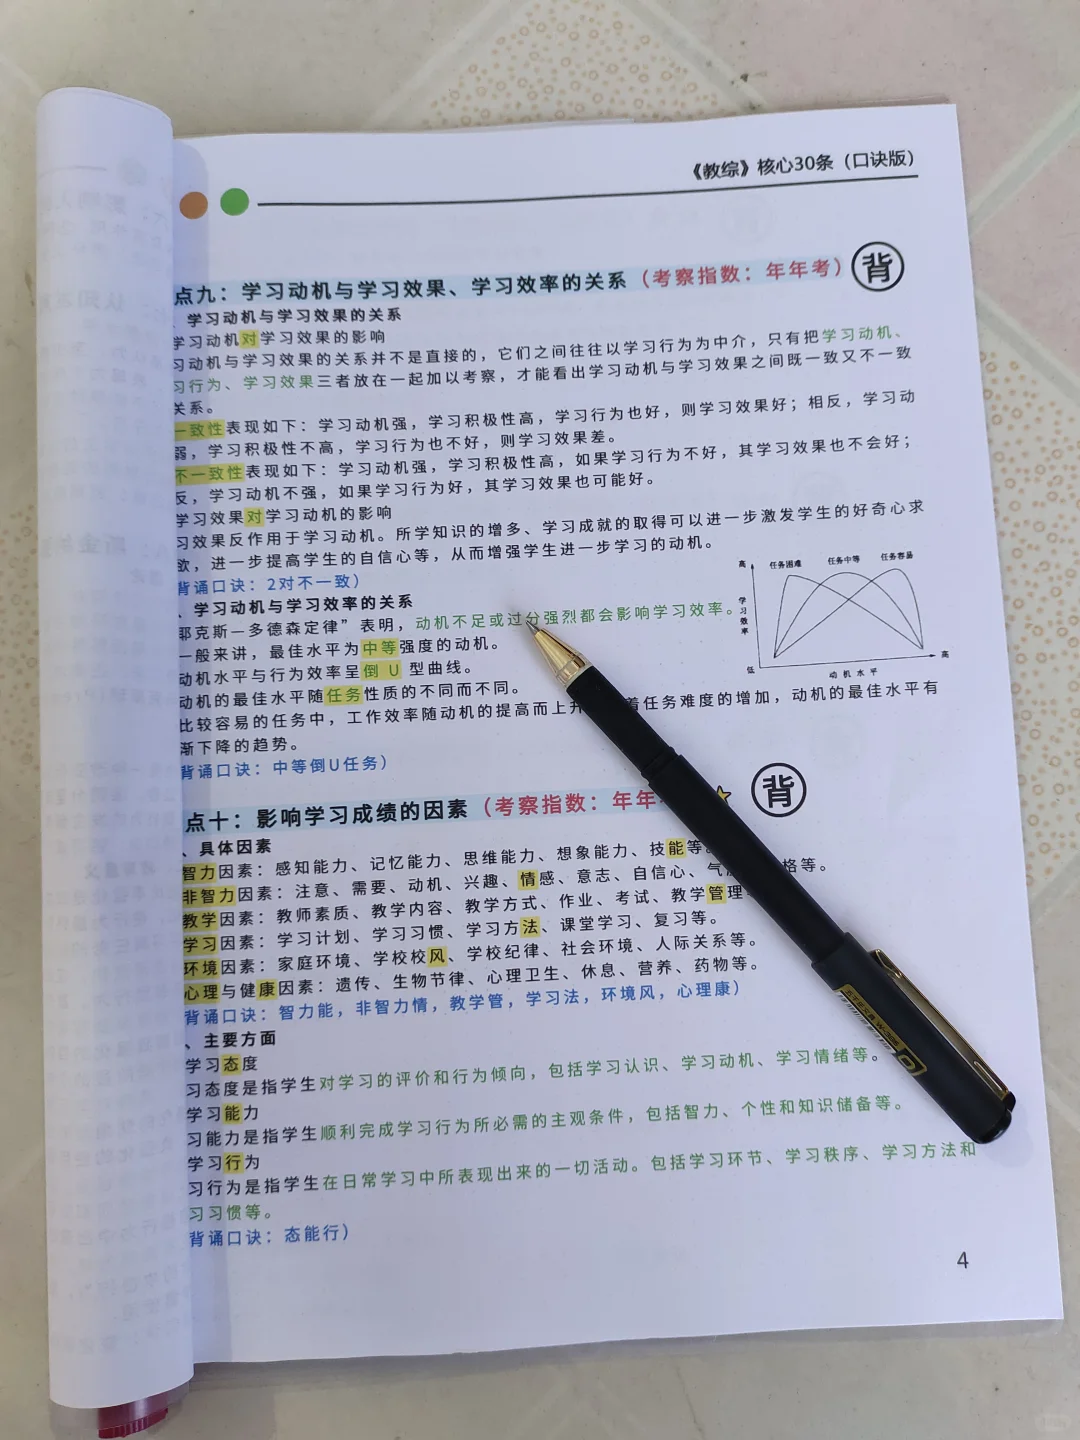 《教综》核心30条（口诀版）
点九：学习动机与学习效果、学习效率的关系（考察指数：年年考） 背
、学习动机与学习效果的关系
学习动机对学习效果的影响
习动机与学习效果的关系并不是直接的，它们之间往往以学习行为为中介，只有把学习动机、
习行为、学习效果三者放在一起加以考察，才能看出学习动机与学习效果之间既一致又不一致
关系。
一致性表现如下：学习动机强，学习积极性高，学习行为也好，则学习效果好；相反，学习动
弱，学习积极性不高，学习行为也不好，则学习效果差。
不一致性表现如下：学习动机强，学习积极性高，如果学习行为不好，其学习效果也不会好；
反，学习动机不强，如果学习行为好，其学习效果也可能好。
学习效果对学习动机的影响
习效果反作用于学习动机。所学知识的增多、学习成就的取得可以进一步激发学生的好奇心求
欲，进一步提高学生的自信心等，从而增强学生进一步学习的动机。
背诵口诀：2对不一致）
、学习动机与学习效率的关系
耶克斯—多德森定律”表明，动机不足或过分强烈都会影响学习效率。
一般来讲，最佳水平为中等强度的动机。
动机水平与行为效率呈倒 U 型曲线。
动机的最佳水平随任务性质的不同而不同。
比较容易的任务中，工作效率随动机的提高而上升 着任务难度的增加，动机的最佳水平有
渐下降的趋势。
背诵口诀：中等倒U任务）
高 任务困难 任务中等 任务容易
学习效率
低 动机水平 高
点十：影响学习成绩的因素（考察指数：年年 背
、具体因素
智力因素：感知能力、记忆能力、思维能力、想象能力、技能等
非智力因素：注意、需要、动机、兴趣、情感、意志、自信心、气 格等。
教学因素：教师素质、教学内容、教学方式、作业、考试、教学管理
学习因素：学习计划、学习习惯、学习方法、课堂学习、复习等。
环境因素：家庭环境、学校校风、学校纪律、社会环境、人际关系等。
心理与健康因素：遗传、生物节律、心理卫生、休息、营养、药物等。
背诵口诀：智力能，非智力情，教学管，学习法，环境风，心理康）
、主要方面
学习态度
习态度是指学生对学习的评价和行为倾向，包括学习认识、学习动机、学习情绪等。
学习能力
习能力是指学生顺利完成学习行为所必需的主观条件，包括智力、个性和知识储备等。
学习行为
习行为是指学生在日常学习中所表现出来的一切活动。包括学习环节、学习秩序、学习方法和
习习惯等。
背诵口诀：态能行）
4